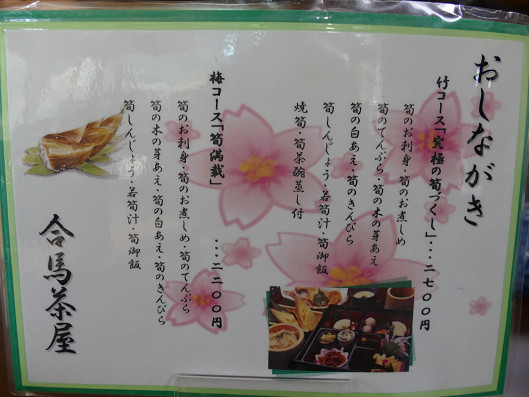 おしながき
竹コース「究極の筍づくし」・・・二七〇〇円
筍のお刺身・筍のお煮しめ
筍のてんぷら・筍の木の芽あえ
筍の白あえ・筍のきんぴら
筍しんじょう・若筍汁・筍御飯
焼筍・筍茶碗蒸し付
梅コース「筍満載」・・・二二〇〇円
筍のお刺身・筍のお煮しめ・筍のてんぷら
筍の木の芽あえ・筍の白あえ・筍のきんぴら
筍しんじょう・若筍汁・筍御飯
合馬茶屋